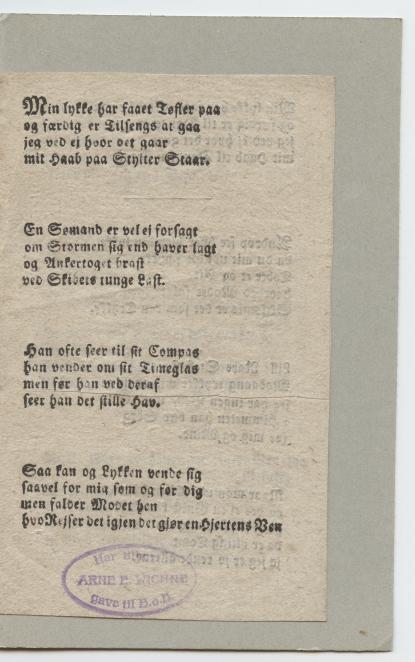 Min lykke har faaet Tøfler paa
og færdig er Tilsengs at gaa
jeg ved ej hvor det gaar
mit Haab paa Stylter Staar.
En Sømand er vel ei forsagt
om Stormen sig end haver lagt
og Ankertoget brast
ved Skibets tunge Last.
Han ofte seer til sit Compas
han vender om sit Timeglas
men før han ved deraf
seer han det stille Hav.
Saa kan og Lykken vende sig
saavel for mig som og for dig
men falder Modet hen
hvo Rejser det igjen det gjør en Hjertens Ven
Har tilhørt
ARNE E. WIGHNE
gave til B.o.B.